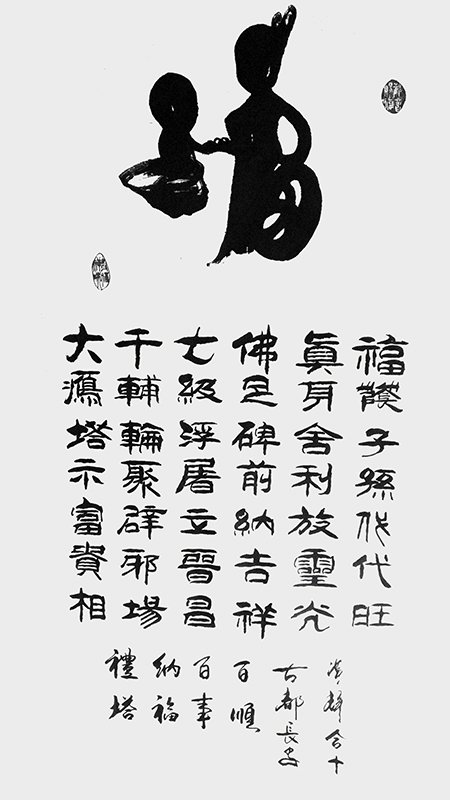 福子孫代代旺
眞身舍利放靈光
佛足碑前納吉祥
七級浮屠立晉昌
千輔輪聚辟邪場
大鴈塔示富貴相
合十
古都長安
百順
百事
納福
禮塔